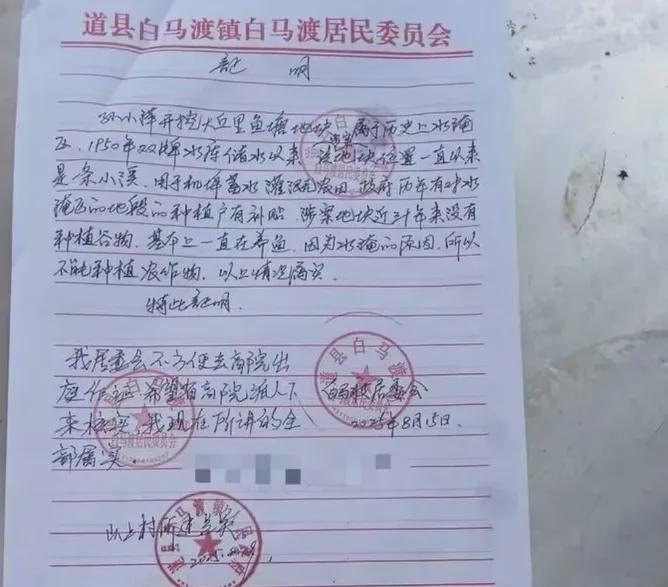 道县白马渡镇白马渡居民委员会
证 明
孙小洋开挖大丘里鱼塘地块属于历史上水淹
区，1950年双牌水库储水以来，该地块位置一直以来
是一条小溪，用于积蓄水灌溉农田，政府历年有对水
淹区的地段的种植户有补贴，涉案地块近三十年来没有
种植谷物，基本上一直在养鱼，因为水淹的原因，所以
不能种植农作物，以上情况属实.
特此证明.
我居委会不方便去高院出
庭作证 希望省高院派人下
来核实，我现在所讲的全
部属实.
居委会
2025年8月15日.
山上村
道县白马渡
白马渡居民委员会